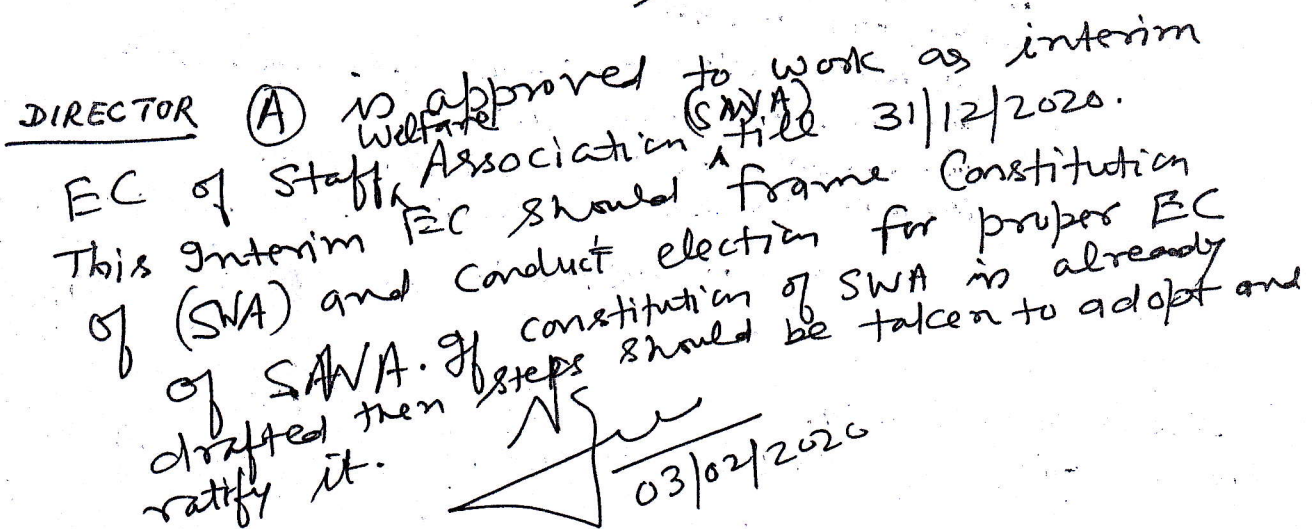 DIRECTOR Ⓐ is approved to work as interim
EC of Staff Welfare Association (SWA) till 31/12/2020.
This Interim EC should frame Constitution
of (SWA) and conduct election for proper EC
of SAWA. If constitution of SWA is already
drafted then steps should be taken to adopt and
ratify it.
03/02/2020